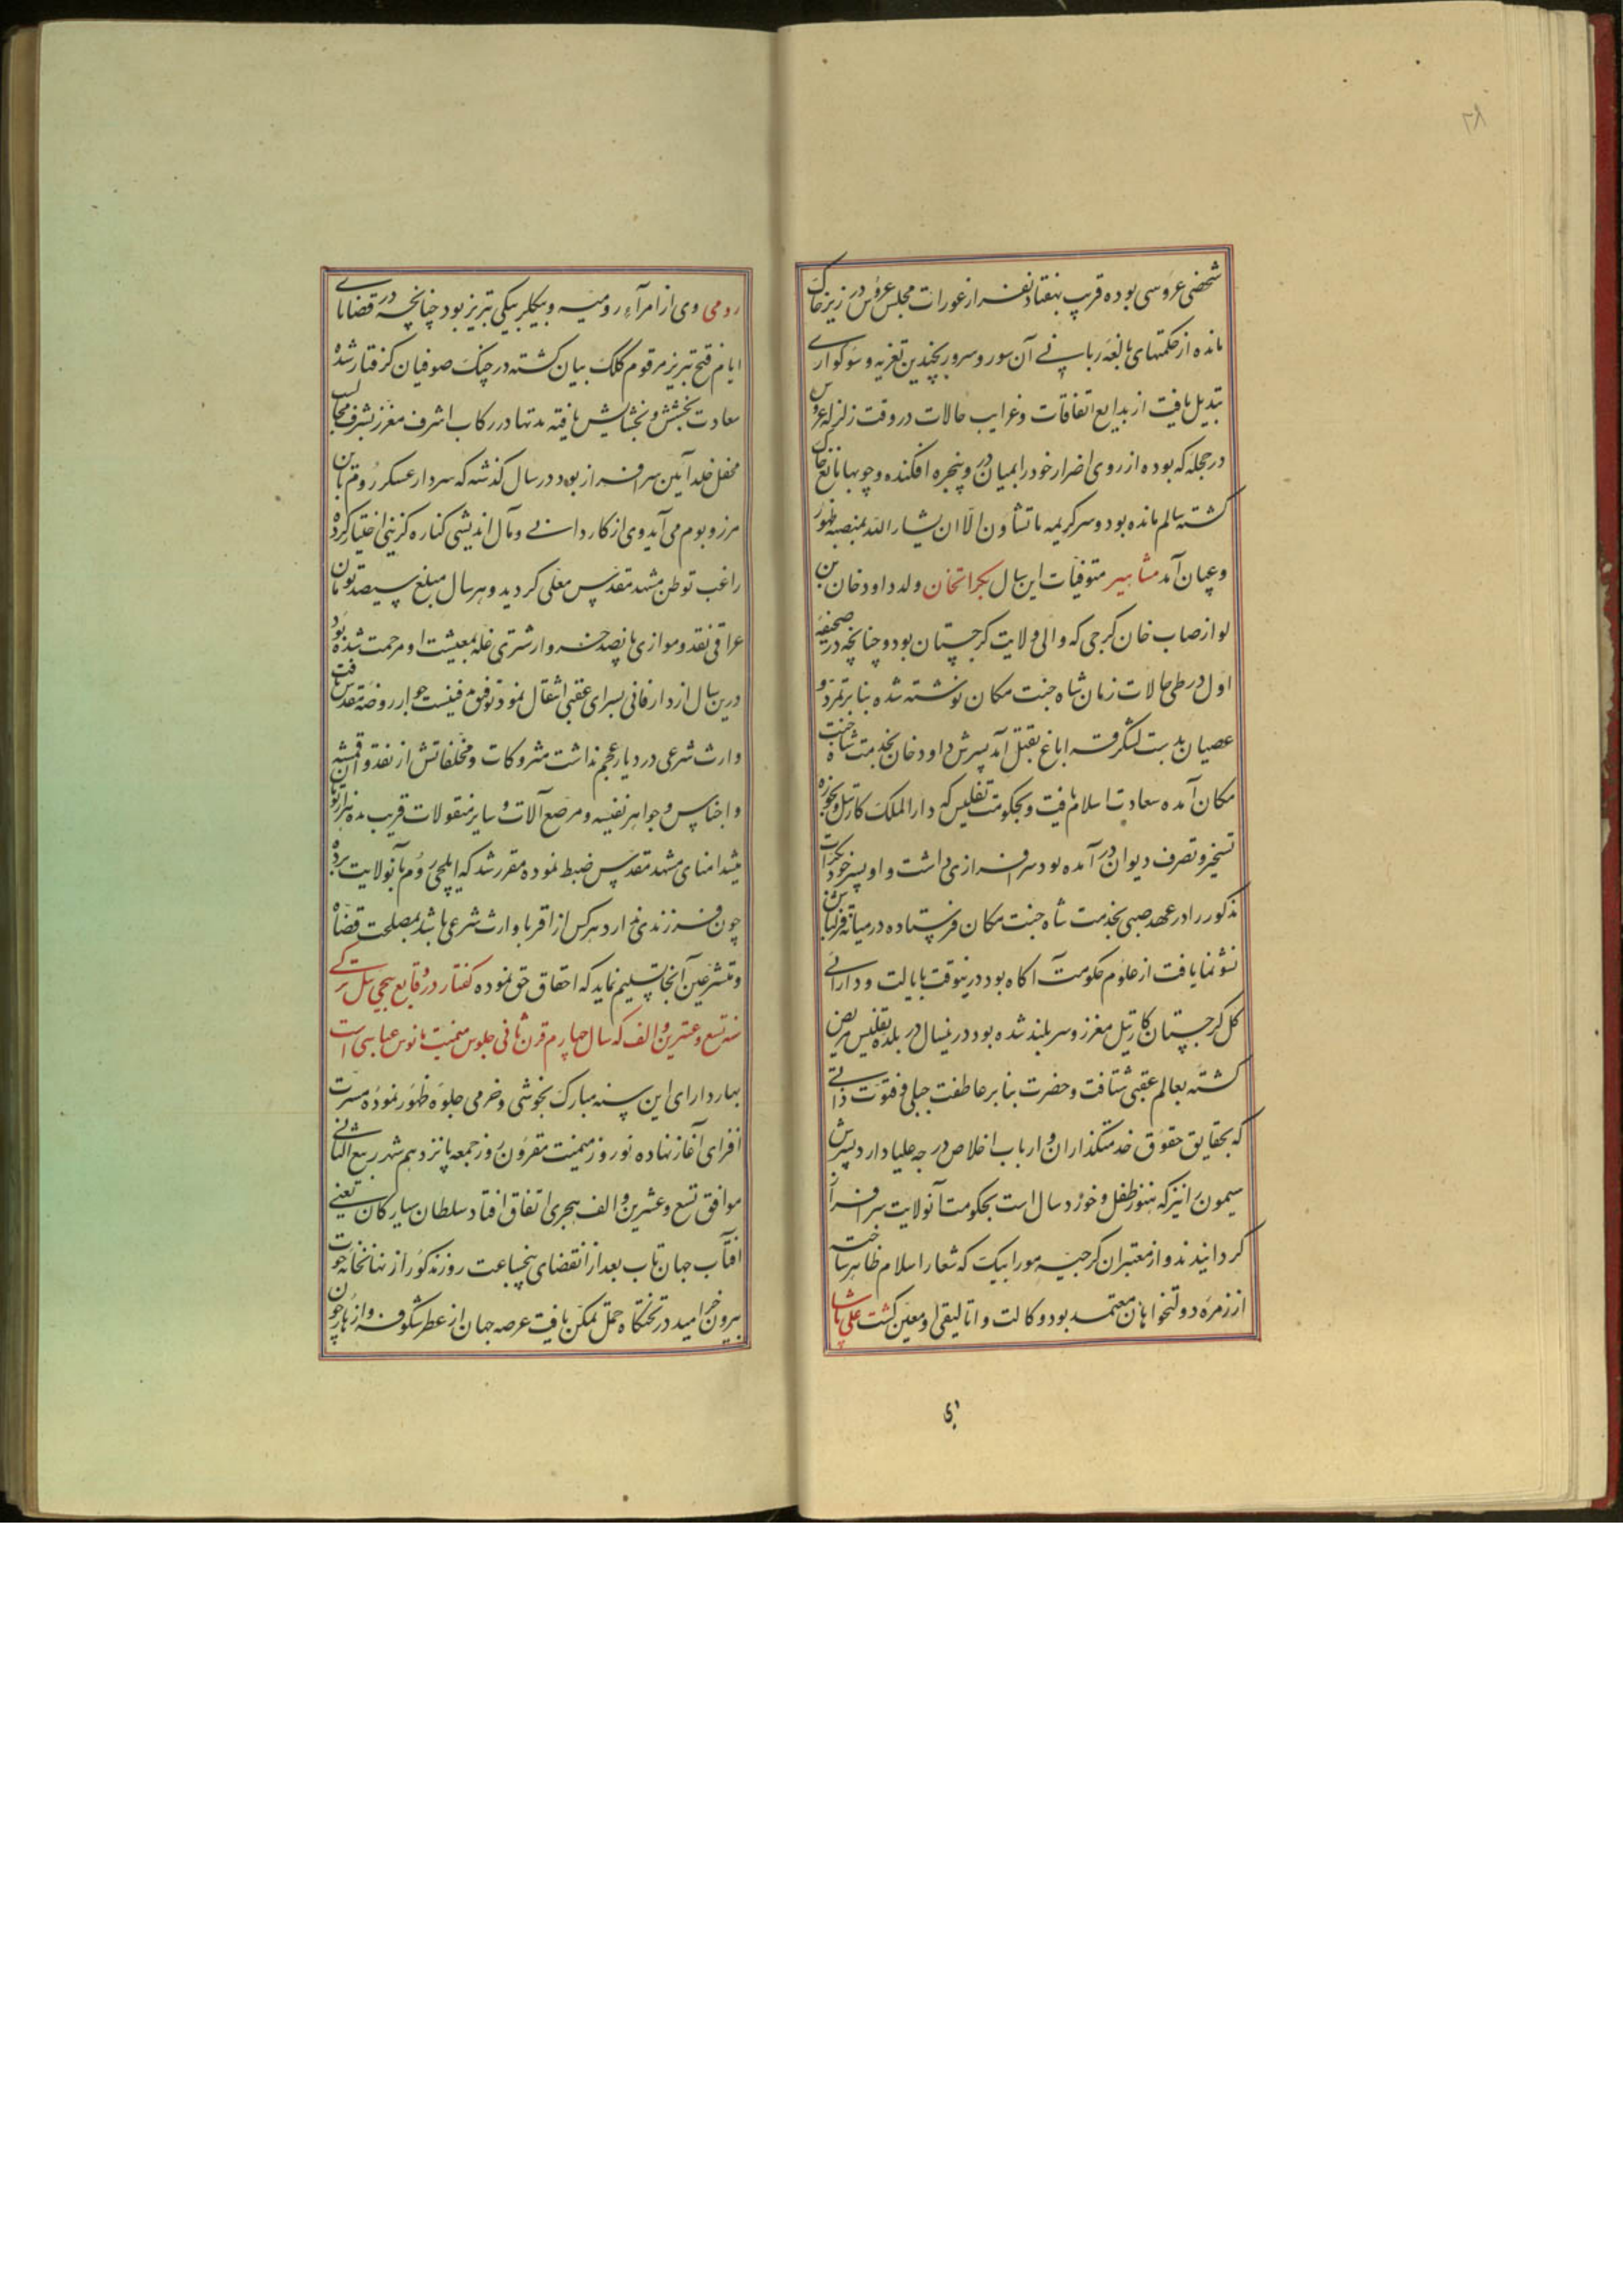 ۲۸
شخصی عروسی بوده قریب بهفتاد نفر از عورات مجلس عروس در زیر خاک
مانده از حکمتهای بالغه ربانی آن سور و سرور بچندین تعزیه و سوکواری
تبدیل یافت از بدایع اتفاقات و غرایب حالات در وقت زلزله عروس
در حجله که بوده از روی اضرار خود را بمیان در و پنجره افکنده و چوبها مانع خاک
کشته سالم مانده بود و سر کریمه ما تشاون الا ان یشاء الله بمنصبه ظهور
و عیان آمد مشاهیر متوفیات این سال بکراتخان ولد داود خان بن
لوارصاب خان کرجی که والی ولایت کرجستان بود و چنانچه در صحیفه
اول در طی حالات زمان شاه جنت مکان نوشته شده بنابر تمرد و
عصیان بدست لشکر قرا باغ بقتل آمد پسرش داود خان بخدمت شاه جنت
مکان آمده سعادت اسلام یافت و بحکومت تفلیس که دار الملک کارتیل و بحوزه
تسخیر و تصرف دیوان در آمده بود سرافرازی داشت و او پسر خود بکرات
مذکور را در عهد صبی بخدمت شاه جنت مکان فرستاده در میانه قزلباش
نشو نما یافت از علوم حکومت آکاه بود درینوقت بایالت و دارائی
کل کرجستان کارتیل معزز و سربلند شده بود درینسال در بلده تفلیس مریض
کشته بعالم عقبی شتافت و حضرت بنابر عاطفت جبلی و فتوت ذاتی
که بحقایق حقوق خدمتکذاران و ارباب اخلاص درجه علیا دارد پسرش
سیمون را نیز که هنوز طفل و خورد سال است بحکومت آنولایت سرافراز
کردانیدند و از معتبران کرجیه موراو بیک که شعار اسلام ظاهر ساخته
از زمره دولتخواهان معتمد بود وکالت و اتالیقی او معین کشت علی پاشا
رومی وی از امراء رومیه و بیکلربیکی تبریز بود چنانچه در قضایای
ایام فتح تبریز مرقوم کلک بیان کشته در جنک صوفیان کرفتار شده
سعادت بخشش و بخشایش یافته مدتها در رکاب اشرف معزز بشرف مجالس
محفل خلد آیین سرافراز بود در سال کذشته که سردار عسکر روم باین
مرز و بوم می آمد وی از کاردانی و مآل اندیشی کناره کزینی اختیار کرده
راغب توطن مشهد مقدس معلی کردید و هر سال مبلغ سیصد تومان
عراقی نقد و موازی پانصد خروار شتری غله بمعیشت او مرحمت شده بود
درین سال از دار فانی بسرای عقبی انتقال نمود توفیق جوار روضه مقدس یافت
وارث شرعی در دیار عجم نداشت متروکات و مخلفاتش از نقد و اقمشه
و اجناس و جواهر نفیسه و مرصع آلات و سایر منقولات قریب بده هزار تومان
میشد امنای مشهد مقدس ضبط نموده مقرر شد که ایلچی روم بآنولایت برده
چون فرزندی ندارد هرکس از اقربا وارث شرعی باشد بمصلحت قضاه
و متشرعین آنجا تسلیم نماید که احقاق حق نموده کفتار در وقایع ییچی ئیل ترکی
سنه تسع و عشرین و الف که سال چهارم قرن ثانی جلوس میمنت مانوس عباسی است
بهار دارای این سنه مبارک بخوشی و خرمی جلوه ظهور نموده مسرت
افزای آغاز نهاده نوروز میمنت مقرون روز جمعه پانزدهم شهر ربیع الثانی
موافق تسع و عشرین و الف هجری اتفاق افتاد سلطان سیارکان یعنی
آفتاب جهان تاب بعد از انقضای پنجساعت روز مذکور از نهانخانه حوت
بیرون خرامید در تختکاه حمل تمکن یافت عرصه جهان از عطر شکوفه و ازهار چون